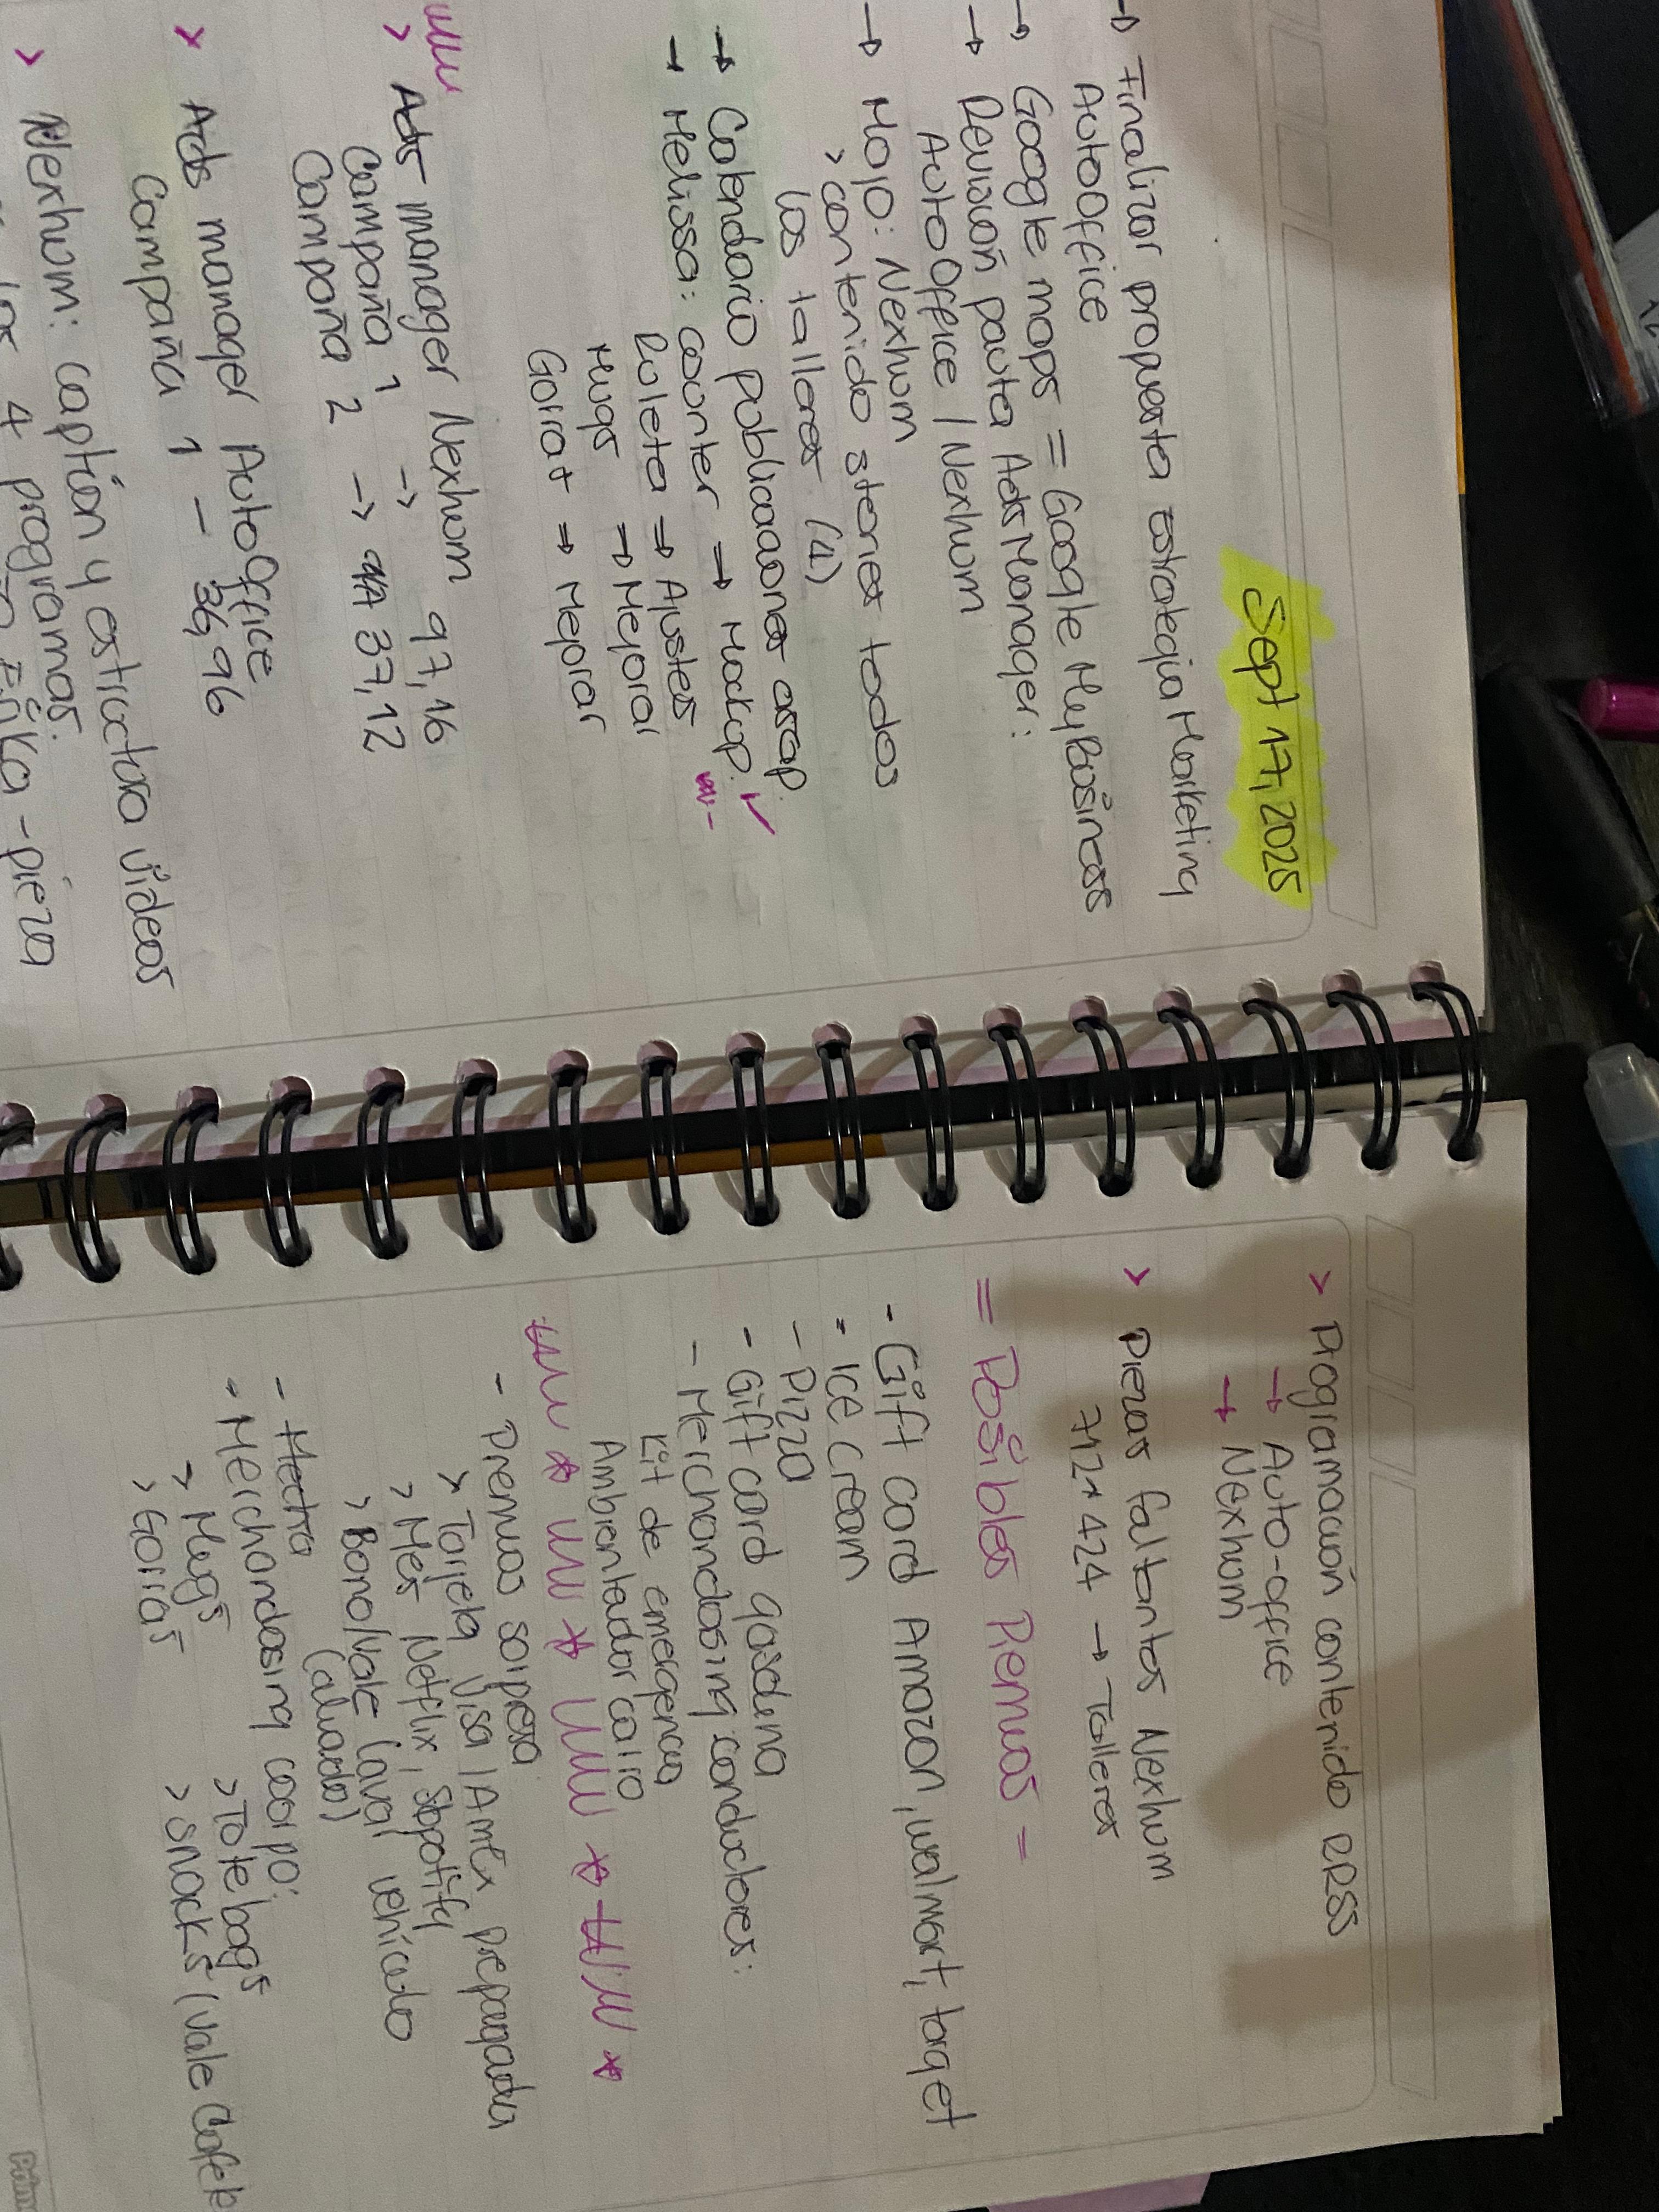 Sept 17, 2025
→ Finalizar propuesta estrategia Marketing
AutoOffice
→ Google maps = Google My Business
→ Revisión pauta Ads Manager:
AutoOffice / Nexhum
→ Mojo: Nexhum
> contenido stories todos
los talleres (4)
→ Calendario publicaciones asap.
→ Melissa: counter → Mockup. ✓
Ruleta → Ajustes
Mugs → Mejorar
Gorras → Mejorar
> Ads manager Nexhum
Campaña 1 -> 97,16
Campaña 2 → 37,12
> Ads manager AutoOffice
Campaña 1 - 36,96
> Nexhum: caption y estructura videos
los 4 programas.
- pieza
> Programación contenido RRSS
→ Auto-office
→ Nexhum
> Piezas faltantes Nexhum
712x424 → Talleres
= Posibles Premios =
- Gift card Amazon, walmart, target
- Ice Cream
- Pizza
- Gift card gasolina
- Merchandising conductores:
Kit de emergencia
Ambientador carro
- Premios sorpresa
> Tarjeta Visa / Amex prepagada
> Mes Netflix, Spotify
> Bono/Vale lavar vehículo
(aliado)
- Merchandising corpo:
> Mugs > Totebags
> Gorras > Snacks (vale Café